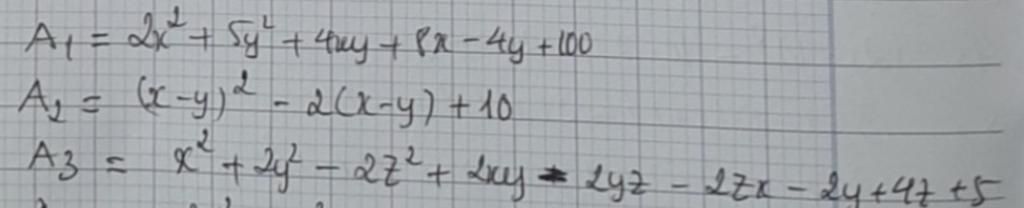 A₁ = 2x² + 5y² + 4xy + 8x - 4y + 100
A₂ = (x-y)² - 2(x-y) + 10
A3 = x² + 2y² - 2z² + 2xy - 2yz - 2zx - 2y + 4z + 5